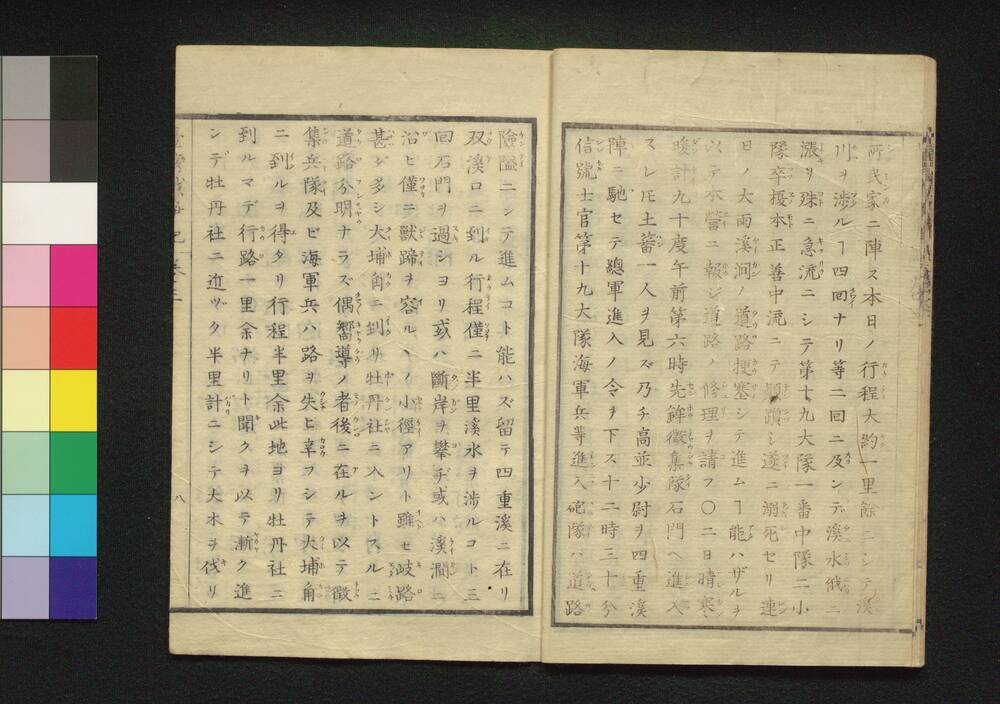 民家ニ陣ス本日ノ行程大約一里餘ニシテ溪
川ヲ渉ルヿ四回ナリ等二回ニ及ンデ溪水俄ニ
漲リ殊ニ急流ニシテ第十九大隊一番中隊二小
隊卒榎本正善中流ニテ顛躓シ遂ニ溺死セリ連
日ノ大雨溪澗ノ道路梗塞シテ進ムヿ能ハザルヲ
以テ本營ニ報ジ道路ノ修理ヲ請フ〇二日晴寒
暖計九十度午前第六時先鋒徴集隊石門ヘ進入
スレ𪜈土蕃一人ヲ見ズ乃チ高並少尉ヲ四重溪
陣ニ馳セテ總軍進入ノ令ヲ下ス十二時三十分
信號士官第十九大隊海軍兵等進入砲隊ハ道路
險隘ニシテ進ムコト能ハズ留テ四重溪ニ在リ
双溪口ニ到ル行程僅ニ半里溪水ヲ渉ルコト三
回石門ヲ過シヨリ或ハ斷岸ヲ攀ヂ或ハ溪澗ニ
沿ヒ僅ニ獸蹄ヲ容ルヽノ小徑アリト雖セ岐路
甚ダ多シ大埔角ニ到リ牡丹社ニ入ントスルニ
道路分明ナラズ偶嚮導ノ者後ニ在ルヲ以テ徴
集兵隊及ビ海軍兵ハ路ヲ失ヒ辛フシテ大埔角
ニ到ルヲ得タリ行程半里余此地ヨリ牡丹社ニ
到ルマデ行路一里余ナリト聞クヲ以テ漸ク進
ンデ牡丹社ニ近ヅク半里計ニシテ大木ヲ伐リ
八